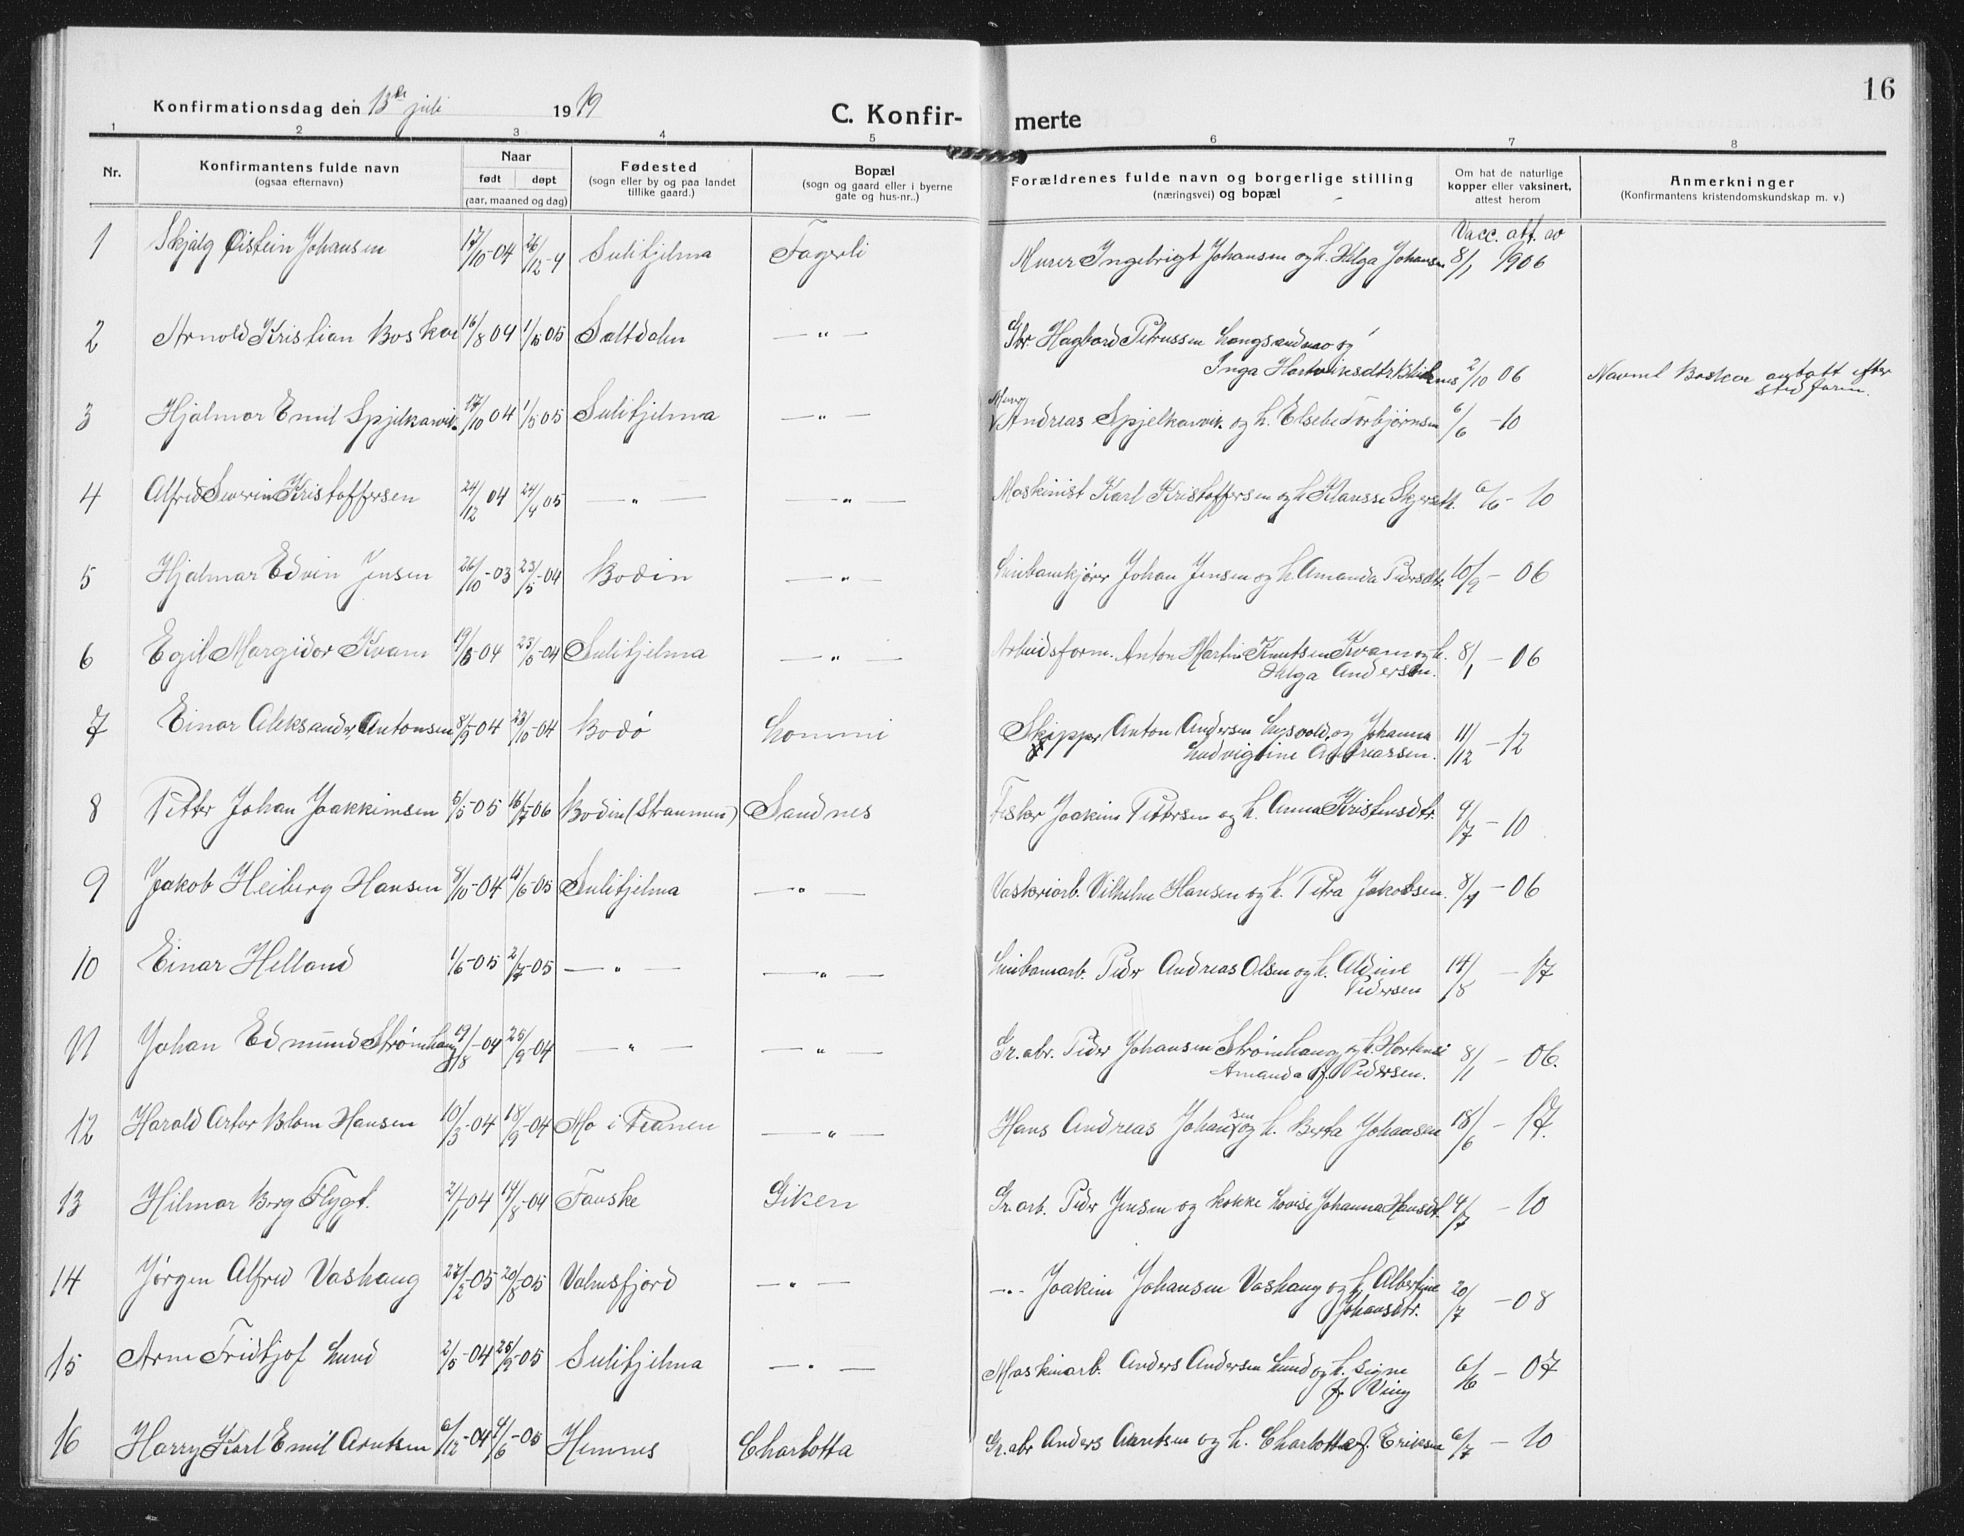 16
Konfirmationsdag den 13de juli 1919
C. Konfir- merte
1 2 3 4 5 6 7 8
Nr.
Konfirmantens fulde navn
(ogsaa efternavn)
Naar
født døpt
(aar, maaned og dag)
Fødested
(sogn eller by og paa landet
tillike gaard.)
Bopæl
(sogn og gaard eller i byerne
gate og hus-nr..)
Forældrenes fulde navn og borgerlige stilling
(næringsvei) og bopæl
Om hat de naturlige
kopper eller vaksinert,
attest herom
Anmerkninger
(Konfirmantens kristendomskundskap m. v.)
Vacc. att. av
1 Skjalg Øistein Johansen 17/10-04 26/12-4 Sulitjelma Fagerli Murer Ingebrigt Johansen og h. Helga Johansen 8/1 1906
2 Arnold Kristian Boskar 16/8 04 05 Saltdalen —"— Gbr. Hagbard Petrussen Langsandmo og
Inga 2/10 06 Navnet Boskar antatt efter
stedfaren.
3 Hjalmar Emil Spjelkarvik 17/10 04 1/5 05 Sulitjelma —"— Andreas Spjelkarvik og h. Elsebe Torbjørnsen 6/6 -10
4 Alfred Severin Kristoffersen 24/12 04 24/4 05 —"— —"— Maskinist Karl Kristoffersen og h. 6/6 - 10
5 Hjalmar Edvin Jensen 26/10-03 23/5-04 Bodin —"— Johan Jensen og h. Amanda Pedersdtr. 10/9 - 06
6 Egil Margidor Kvam 04 04 Sulitjelma —"— Arbeidsform. Anton Martin Knutsen Kvam og h.
Helga Andersen. 8/1 - 06
7 Einar Aleksander Antonsen 8/9-04 23/10-04 Bodø Lommi Skipper Anton Andersen Lysvold, og Johanna
Ludvigtine Andreassen. 11/12 - 12
8 Petter Johan Joakkimsen 5/5-05 16/7-06 Bodin (Straumen) Sandnes Fisker Joakim Pettersen og h. Anna Kristensdtr. 9/7 - 10
9 Jakob Heiberg Hansen 8/10-04 05 Sulitjelma —"— Vaskeriarb. Vilhelm Hansen og h. Petra Jakobsen. 8/1 - 06
10 Einar Helland 1/6-05 2/7-05 —"— —"— Peder Andreas Olsen og h. Aldine
Pedersen 14/8 - 17
11 Johan Edmund Strømhaug 19/8-04 25/9-04 —"— —"— Gr. abr. Peder Johansen Strømhaug og h. Hortensi
Amanda f. Pedersen. 8/1 - 06.
12 Harald Artor Blom Hansen 10/3-04 18/9-04 Mo i Ranen —"— Hans Andreas Johansen og h. Berta Johansen 18/6 - 17.
13 Hilmar Berg Flygt. 2/1-04 14/8-04 Fauske Giken Gr. arb. Peder Jensen og kokke Lovise Johanna Hansdt. 4/7 - 10
14 Jørgen Alfred Vashaug 27/2-05 20/8-05 Valnesfjord —"— —"— Joakim Johansen Vashaug og h. Albertine
Johansdtr. 20/7 - 08
15 Arne Fridtjof Lund 2/5-04 25/9-05 Sulitjelma —"— Maskinarb. Anders Andersen Lund og h. Signe
f. Ving 6/6 - 07
16 Harry Karl Emil Arntsen 6/12-04 4/6-05 Hemnes Charlotta Gr. abr Anders Arntsen og h. Charlotte f. Eriksen 6/7 - 10